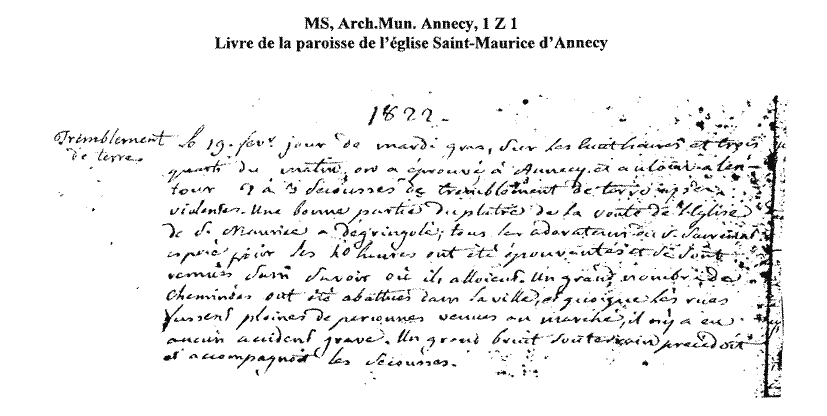 MS, Arch.Mun. Annecy, 1 Z 1
Livre de la paroisse de l'église Saint-Maurice d'Annecy
1822.
Tremblement
de terre.
le 19. fevr. jour de mardi gras, sur les huit heures et trois
quarts du matin, on a éprouvé à Annecy et
tour 2 à 3 secousses de tremblement de terre
violentes. Une bonne partie du platre de la voute de l'Eglise
de St Maurice a dégringolé; tous les adorateurs du St Sacrement
exposé pour les 40 heures ont été épouvantés et se sont
sans savoir où ils alloient. Un grand nombre de
cheminées ont été abattues dans la ville, et quoique les rues
fussent pleines de personnes venues au marché, il n'y a eu
aucun accident grave. Un grand bruit souterrain précédoit
et accompagnoit les secousses.